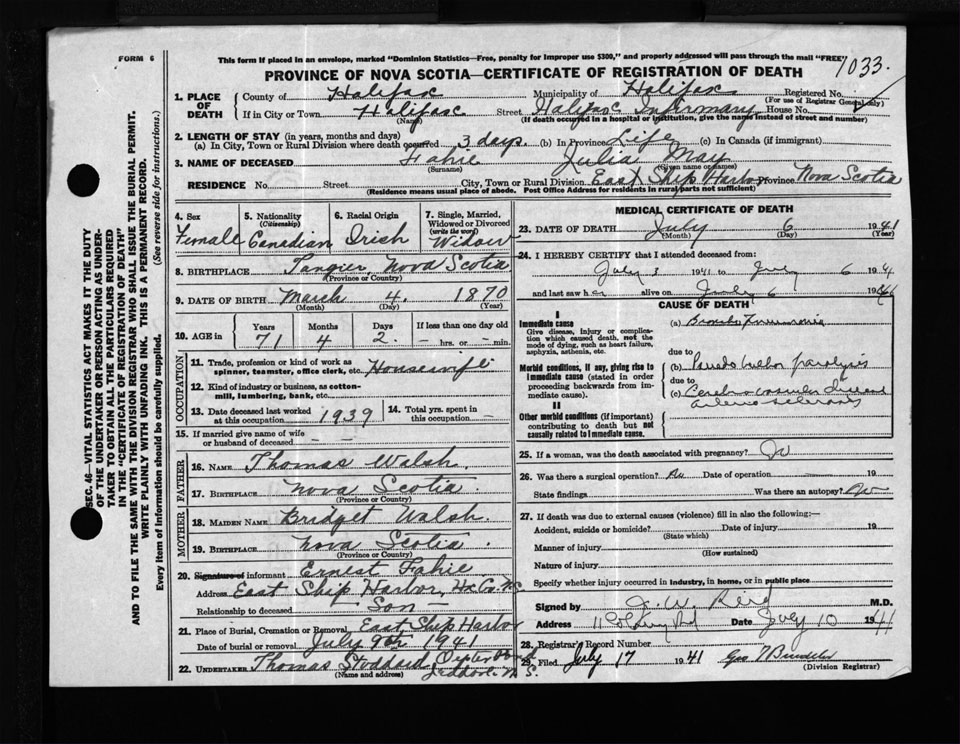 FORM 6
This form if placed in an envelope, marked "Dominion Statistics—Free, penalty for improper use $300," and properly addressed will pass through the mail "FREE"
PROVINCE OF NOVA SCOTIA—CERTIFICATE OF REGISTRATION OF DEATH
1033
1. PLACE OF DEATH
County of Halifax Municipality of Halifax Registered No.
(For use of Registrar General only)
If in City or Town Halifax Street Halifax Infirmary House No.
(Name) (If death occurred in a hospital or institution, give the name instead of street and number)
2. LENGTH OF STAY (in years, months and days)
(a) In City, Town or Rural Division where death occurred 3 days. (b) In Province Life (c) In Canada (if immigrant)
3. NAME OF DECEASED Fahie Julia May
(Surname) (Given name or names)
RESIDENCE No. Street City, Town or Rural Division East Ship Harbor Province Nova Scotia
(Residence means usual place of abode. Post Office Address for residents in rural parts not sufficient)
4. Sex Female
5. Nationality (Citizenship) Canadian
6. Racial Origin Irish
7. Single, Married, Widowed or Divorced (write the word) Widow
8. BIRTHPLACE Tangier, Nova Scotia
(Province or Country)
9. DATE OF BIRTH March 4. 1870
(Month) (Day) (Year)
10. AGE in Years Months Days If less than one day old
71 4 2 - hrs. or - min.
OCCUPATION
11. Trade, profession or kind of work as spinner, teamster, office clerk, etc. Housewife
12. Kind of industry or business, as cotton-mill, lumbering, bank, etc.
13. Date deceased last worked at this occupation 1939
14. Total yrs. spent in this occupation -
15. If married give name of wife or husband of deceased - -
FATHER
16. NAME Thomas Walsh.
17. BIRTHPLACE Nova Scotia.
(Province or Country)
MOTHER
18. MAIDEN NAME Bridget Walsh.
19. BIRTHPLACE Nova Scotia.
(Province or Country)
20. Signature of informant Ernest Fahie
Address East Ship Harbor, Hx. Co. N.S.
Relationship to deceased - Son -
21. Place of Burial, Cremation or Removal East Ship Harbor
Date of burial or removal July 9th 1941
22. UNDERTAKER Thomas Stoddard Oyster Pond Jeddore N.S.
(Name and address)
MEDICAL CERTIFICATE OF DEATH
23. DATE OF DEATH July 6 1941
(Month) (Day) (Year)
24. I HEREBY CERTIFY that I attended deceased from:
July 3 1941 to July 6 1941
and last saw her alive on July 6 1941
CAUSE OF DEATH
I
Immediate cause
Give disease, injury or complication which caused death, not the mode of dying, such as heart failure, asphyxia, asthenia, etc.
(a) Broncho Pneumonia
due to
Morbid conditions, if any, giving rise to immediate cause (stated in order proceeding backwards from immediate cause).
(b) Pseudo bulbar paralysis
due to
(c) Cerebro vascular disease
arterio sclerosis
II
Other morbid conditions (if important) contributing to death but not causally related to immediate cause.
25. If a woman, was the death associated with pregnancy? No
26. Was there a surgical operation? No Date of operation 19
State findings Was there an autopsy? No
27. If death was due to external causes (violence) fill in also the following:—
Accident, suicide or homicide? Date of injury 19
(State which)
Manner of injury
(How sustained)
Nature of injury
Specify whether injury occurred in industry, in home, or in public place
Signed by J. W. Reid M.D.
Address Date July 10 1941
28. Registrar's Record Number
29. Filed July 17 1941
(Division Registrar)
SEC. 46—VITAL STATISTICS ACT MAKES IT THE DUTY OF THE UNDERTAKER OR PERSON ACTING AS UNDERTAKER TO OBTAIN ALL THE PARTICULARS REQUIRED IN THE "CERTIFICATE OF REGISTRATION OF DEATH" AND TO FILE THE SAME WITH THE DIVISION REGISTRAR WHO SHALL ISSUE THE BURIAL PERMIT.
WRITE PLAINLY WITH UNFADING INK. THIS IS A PERMANENT RECORD.
Every item of information should be carefully supplied. (See reverse side for instructions.)